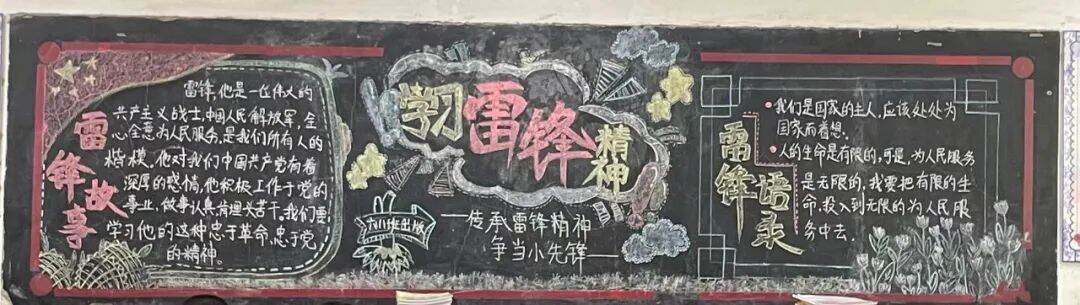 雷锋故事
雷锋,他是一位伟大的
共产主义战士,中国人民解放军,全
心全意为人民服务,是我们所有人的
楷模。他对我们中国共产党有着
深厚的感情,他积极工作于党的
事业,做事认真肯埋头苦干。我们要
学习他的这种忠于革命,忠于党
的精神。
学习雷锋精神
六(1)班出版
——传承雷锋精神
争当小先锋——
雷锋语录
我们是国家的主人,应该处处为
国家而着想。
人的生命是有限的,可是,为人民服务
是无限的,我要把有限的生
命,投入到无限的为人民服
务中去。